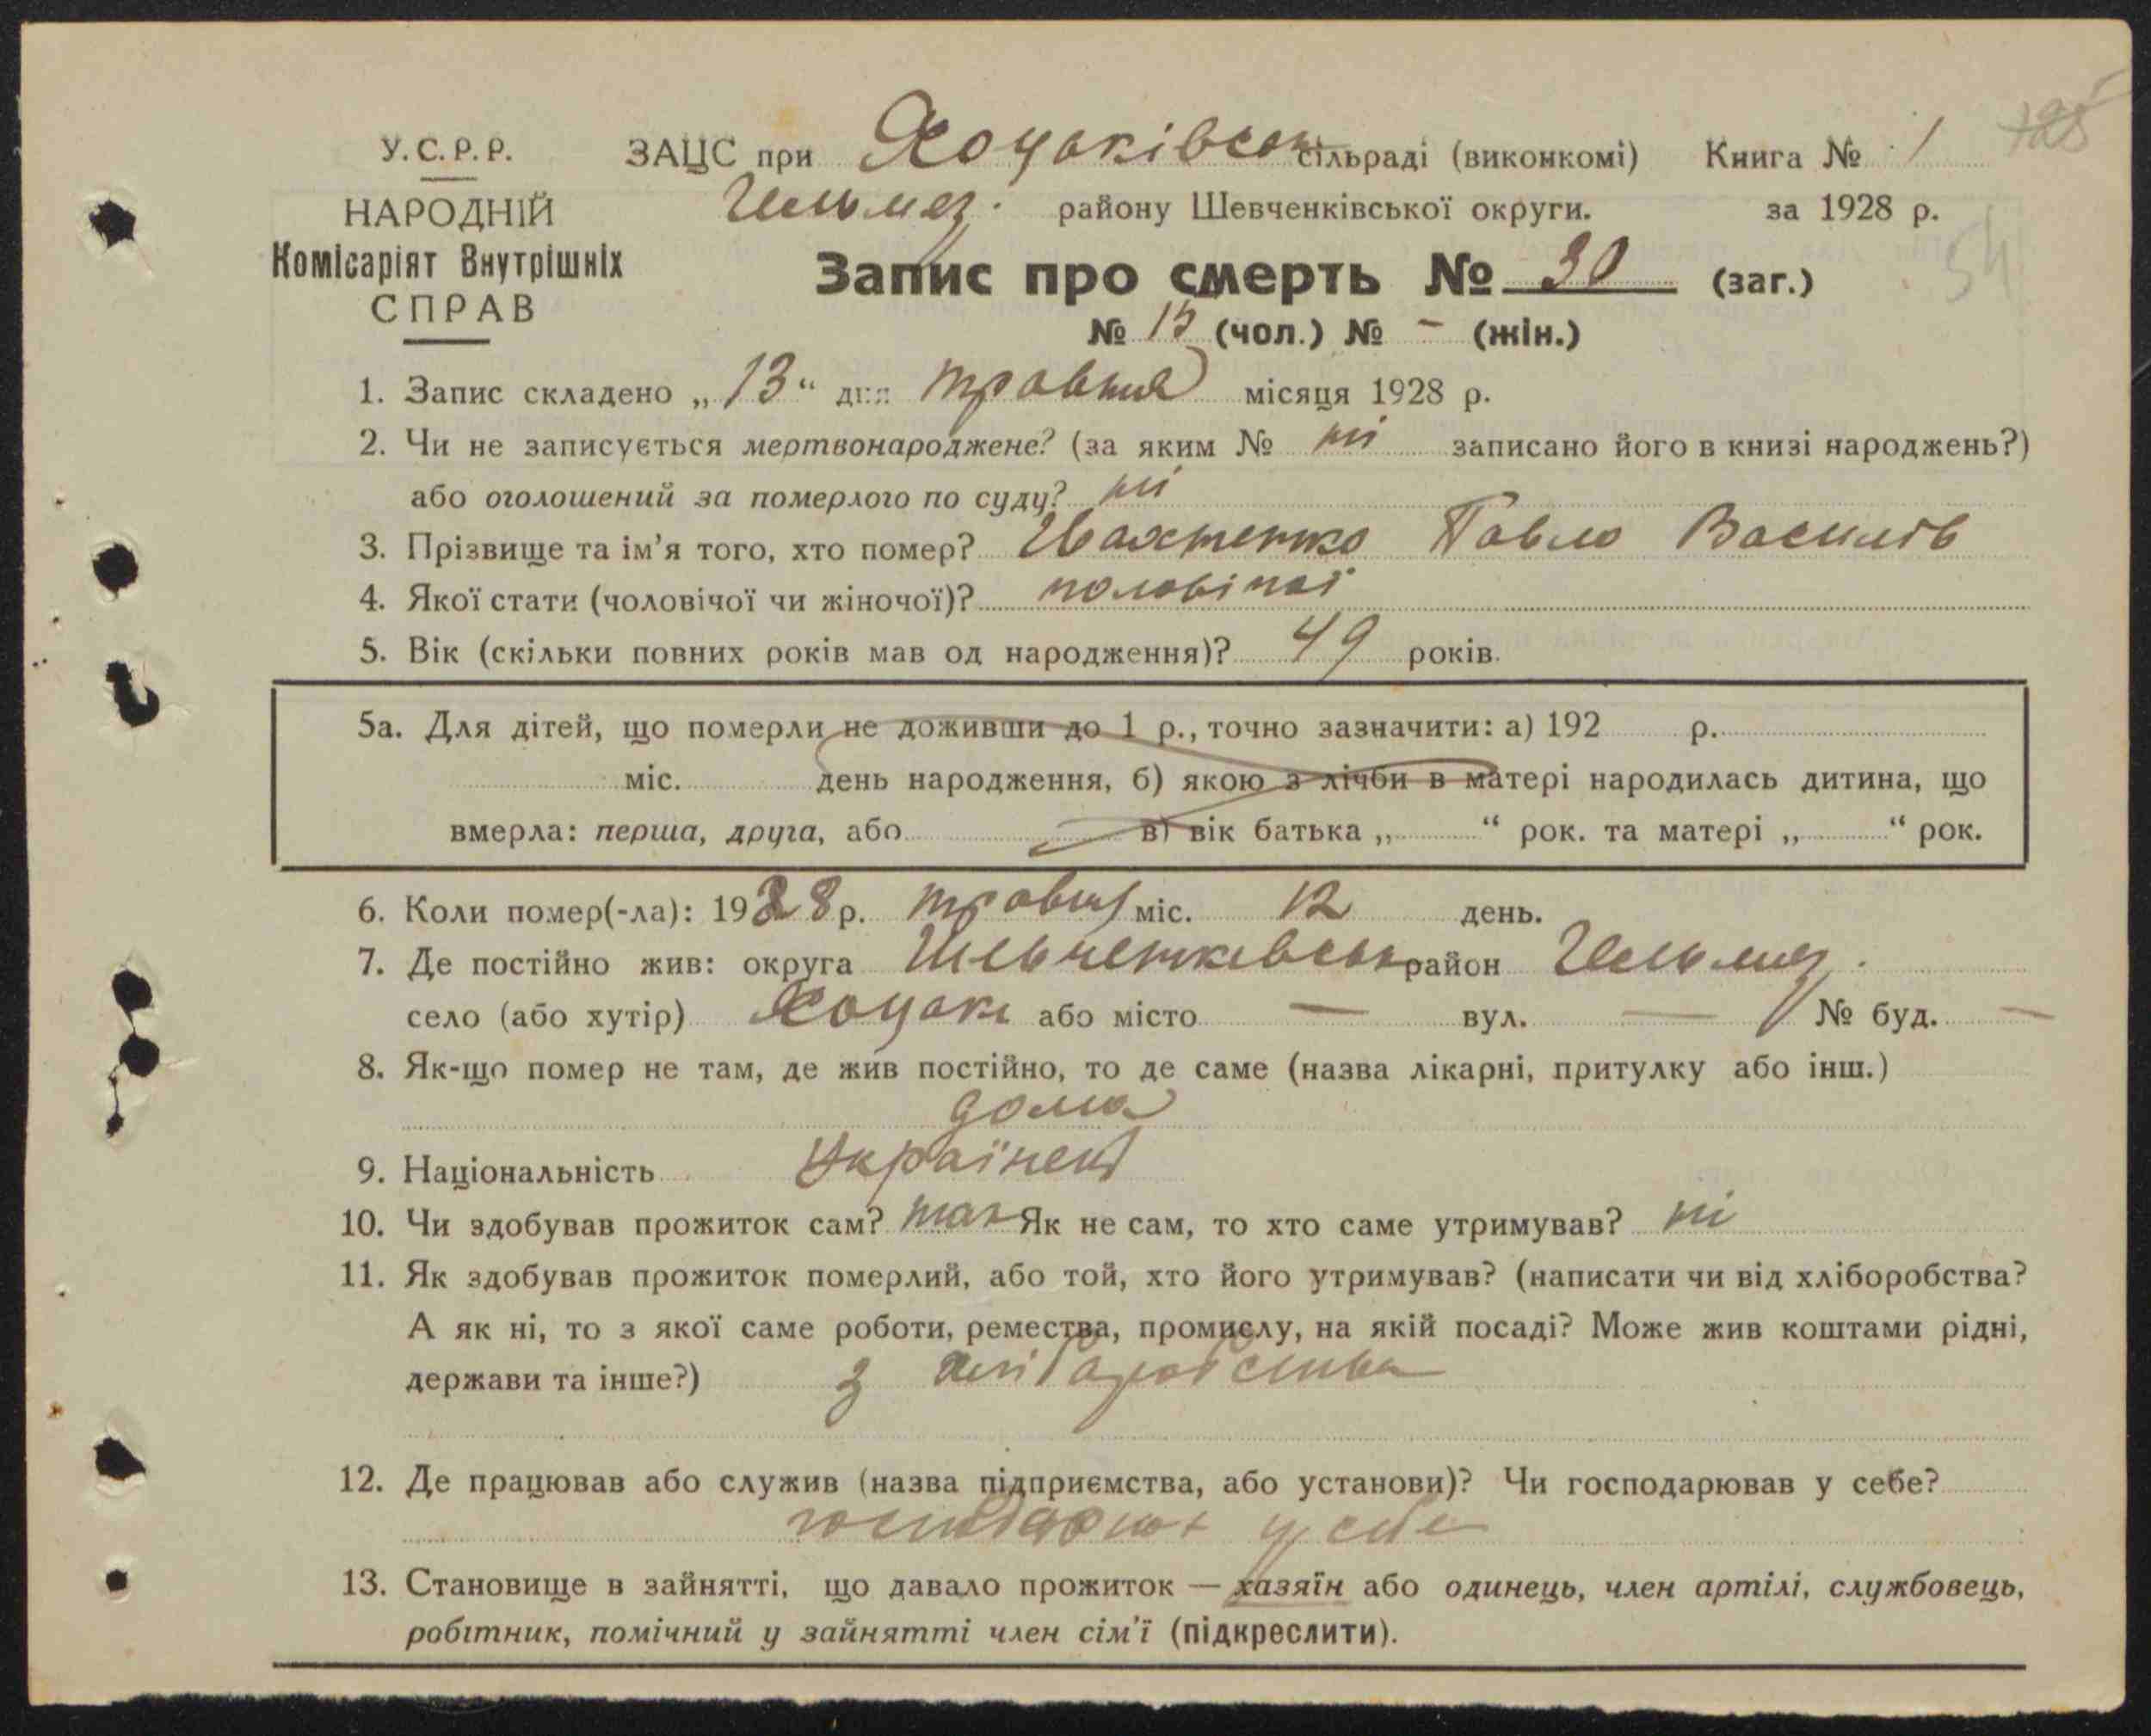 У.С.Р.Р.
НАРОДНІЙ
Комісаріят Внутрішніх
СПРАВ
ЗАЦС при Хоцаківськ сільраді (виконкомі) Книга № 1
району Шевченківської округи. за 1928 р.
54
Запис про смерть № 30 (заг.)
№ 15 (чол.) № – (жін.)
1. Запис складено „13“ дня травня місяця 1928 р.
2. Чи не записується мертвонароджене? (за яким № ні записано його в книзі народжень?)
або оголошений за померлого по суду? ні
3. Прізвище та ім'я того, хто помер? Івахненко Павло Василів
4. Якої стати (чоловічої чи жіночої)?
5. Вік (скільки повних років мав од народження)? 49 років.
5а. Для дітей, що померли не доживши до 1 р., точно зазначити: а) 192 р.
міс. день народження, б) якою з лічби в матері народилась дитина, що
вмерла: перша, друга, або в) вік батька „ “ рок. та матері „ “ рок.
6. Коли помер(-ла): 1928 р. травня міс. 12 день.
7. Де постійно жив: округа Шевченківськ район
село (або хутір) Хоцакі або місто — вул. — № буд. —
8. Як-що помер не там, де жив постійно, то де саме (назва лікарні, притулку або інш.)
дома
9. Національність Українець
10. Чи здобував прожиток сам? так Як не сам, то хто саме утримував? ні
11. Як здобував прожиток померлий, або той, хто його утримував? (написати чи від хліборобства?
А як ні, то з якої саме роботи, ремества, промислу, на якій посаді? Може жив коштами рідні,
держави та інше?) з хліборобства
12. Де працював або служив (назва підприємства, або установи)? Чи господарював у себе?
у себе
13. Становище в зайнятті, що давало прожиток — хазяїн або одинець, член артілі, службовець,
робітник, помічний у зайнятті член сім'ї (підкреслити).